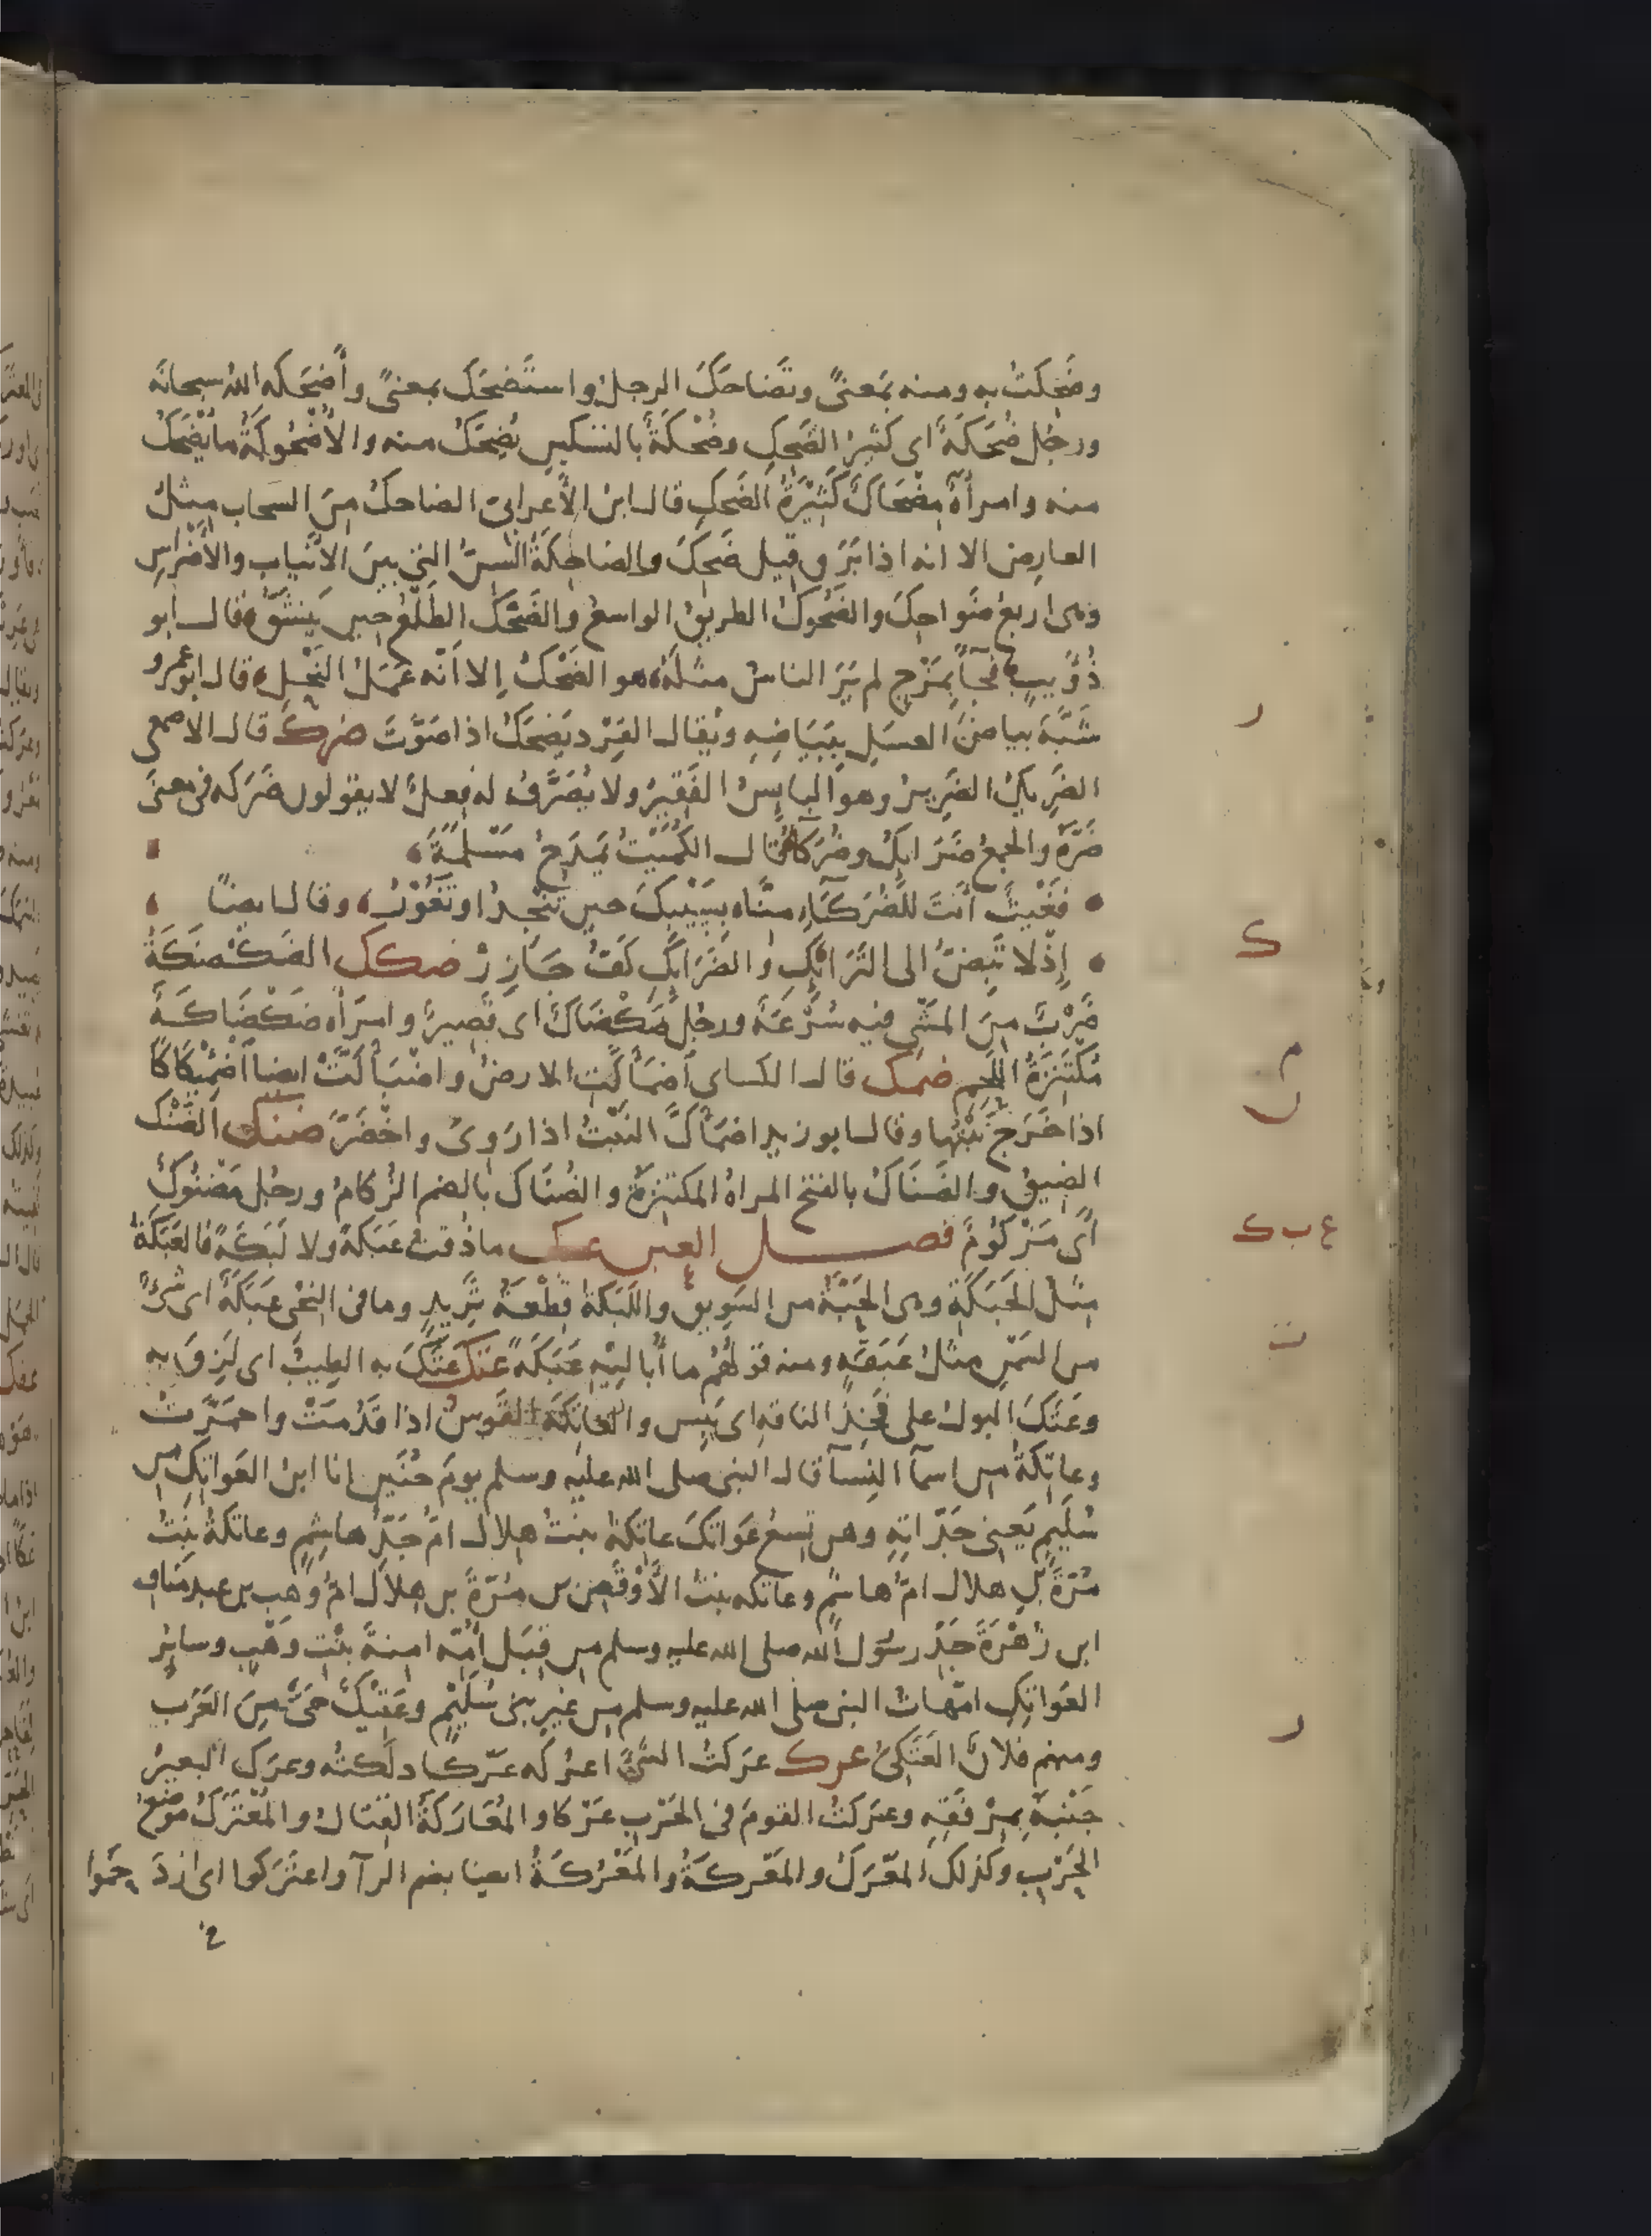 وضَحِكتُ به ومنه بمَعنىً وتَضاحَكَ الرجلُ واستَضحَكَ بمعنىً وأَضحَكه اللهُ سبحانَه
ورجُل ضُحَكَةٌ اى كثيرُ الضَحِكِ وضُحْكَةٌ بالتسكينِ يُضحَكُ منه والأُضْحُوكَةُ ما يُضْحَكُ
منه وامرأةٌ مِضْحَاكٌ كَثِيْرَةُ الضَحِكِ قال ابنُ الأَعرابىّ الضاحكُ مِنَ السَحَاب مِثلُ
العارِض الا انه اذا بَرَق قيل ضَحِكَ والضاحِكَةُ السِنُّ التي بينَ الأَنيابِ والأَضْراسِ
وهى اربعُ ضَواحِكَ والضَحُوكُ الطريقُ الواسعُ والضَحْكُ الطَلْعُ حين يَنشَقُّ قال ابو
ذُؤَيبٍ فجآ بمَزْجٍ لم يَرَ الناسُ مثلَهُ هو الضَحْكُ إلا أنّه عَمَلُ النَحْلِ قال ابو عمرو
شَبَّهَ بياضَ العسَلِ ببَيَاضِهِ ويُقال القِرْد يَضحَكُ اذا صَوَّتَ ضرك قال الاصمعى
الضَرِيكُ الضَرِيرُ وهو البايسُ الفَقيرُ ولا يُصَرَّفُ له فِعلٌ لا يقولون ضَرَكه فى معنى
ضَرَّهُ والجمعُ ضَرَايكُ وضُرَكآءُ قال الكُمَيْتُ يَمدَحُ مَسْلَمَةَ
فغَيْثٌ أَنْتَ للضُرَكَآءِ مِنَّا بسَيْبِكَ حين تُنْجِدُ او تَغُوْرُ وقال ايضًا
إِذْ لا تَبِضُّ الى التَرَايِكِ والضَرَايِكِ كَفُّ جَازِرْ ضكك الضَكْضَكَةُ
ضَرْبٌ مِنَ المَشْىِ فيه سُرْعَةٌ ورجُلٌ ضَكْضَاكٌ اى قَصِيرٌ وامرَأه ضَكْضَاكَةٌ
مُكْتَنِزَةُ اللحِمِ ضمك قال الكساى اضمَأَكَّتِ الارضُ واضْبَأَكَّتْ ايضا اضْمِئْكَاكًا
اذا خَرَجَ نَبْتُها وقال ابو زيد اضمَأَكَّ النَبْتُ اذا رَوِىَ واخْضَرَّ ضنك الضَنْك
الضِيقُ والضَنَاكُ بالفتح المراةُ المكتنِزةُ والضُنَاكُ بالضم الزُكامُ ورجُل مَضْنُوكٌ
أى مَزْكُومٌ فصل العين عبك ما ذُقتُ عَبَكَةً ولا لَبَكَةً فالعَبَكَةُ
مِثلُ الحَبَكَةِ وهى الحَبّةُ من السَوِيق واللَبَكةُ قِطْعَةُ ثَرِيدٍ وما فى النِحْى عَبَكَةٌ اى شىءٌ
من السَمْنِ مثلُ عَبَقَةٍ ومنه قولُهُم ما أُبالِيْهِ عَبَكَةً عتك عَتَكَ به الطِيبُ اى لَزِقَ به
وعَتَكَ البولُ على فَخِذِ الناقةِ اى يَبِس والعاتِكَةُ القَوسُ اذا قَدُمَتْ واحمَرَّتْ
وعاتِكَةُ من اسمآ النِسآ قال النبى صلى الله عليه وسلم يومَ حُنَينٍ انا ابنُ العَواتِكِ من
سُلَيمٍ يَعنى جَدّاتِهِ وهن تِسعُ عَوَاتكَ عاتِكةُ بنتُ هِلال امُّ جَدِّ هاشِمٍ وعاتكةُ بنتُ
مُرّةَ بن هلال امُّ هاشمٍ وعاتكه بنتُ الأَوْقَصِ بن مُرّةَ بن هلال امُّ وَهبِ بن عبد مناف
ابن زُهْرَةَ جَدِّ رسُول الله صلى الله عليه وسلم من قِبَل أُمّه امِنةَ بنْتِ وَهْبٍ وسايرُ
العَواتِكِ امّهاتُ النبى صلى الله عليه وسلم من غيرِ بنى سُلَيْمٍ وعَتِيْكٌ حَىٌّ مِنَ العَرَبِ
ومنهم فلانٌ العَتَكِىُّ عرك عرَكتُ الشَىءَ اعرُكه عَرْكًا دلَكتُه وعرَك البعيرُ
جَنْبَهُ بمِرْفَقِهِ وعرَكتُ القومَ فى الحَرْبِ عَرْكا والمُعَارَكَةُ القِتالُ والمُعْتَرَكُ مَوْضِعُ
الحَرْبِ وكذلك المَعْرَكُ والمَعْرَكَةُ والمَعْرُكَةُ ايضا بضم الرآ واعتَركوا اى ازدَحَموا
ر
ك
م
ن
ع ب ك
ت
ر